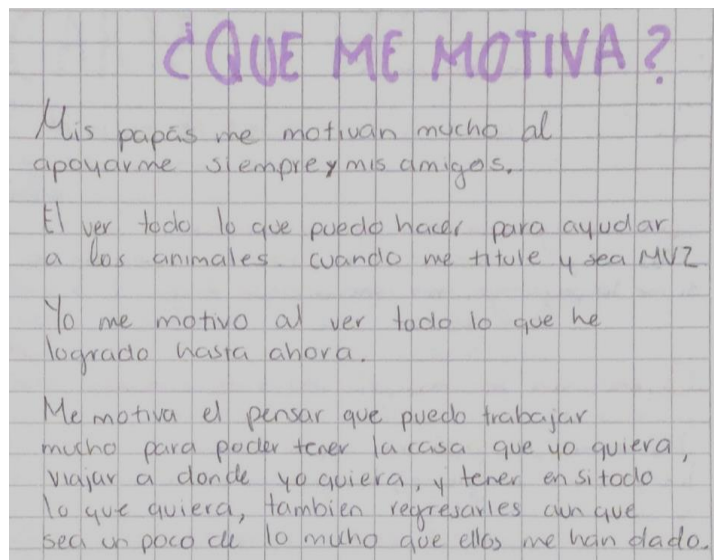 ¿QUE ME MOTIVA?
Mis papás me motivan mucho al
apoyarme siempre y mis amigos.
El ver todo lo que puedo hacer para ayudar
a los animales. cuando me titule y sea MVZ
Yo me motivo al ver todo lo que he
logrado hasta ahora.
Me motiva el pensar que puedo trabajar
mucho para poder tener la casa que yo quiera,
viajar a donde yo quiera, y tener en si todo
lo que quiera, tambien regresarles aun que
sea un poco de lo mucho que ellos me han dado.